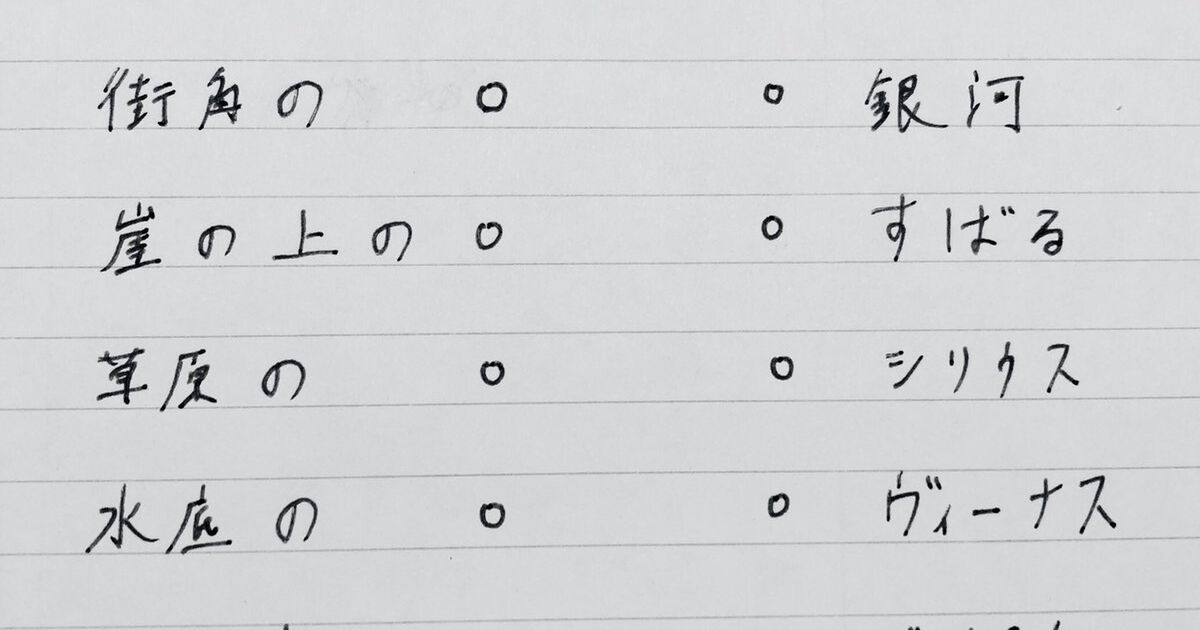 街角の ○ ○ 銀河
崖の上の ○ ○ すばる
草原の ○ ○ シリウス
水底の ○ ○ ヴィーナス